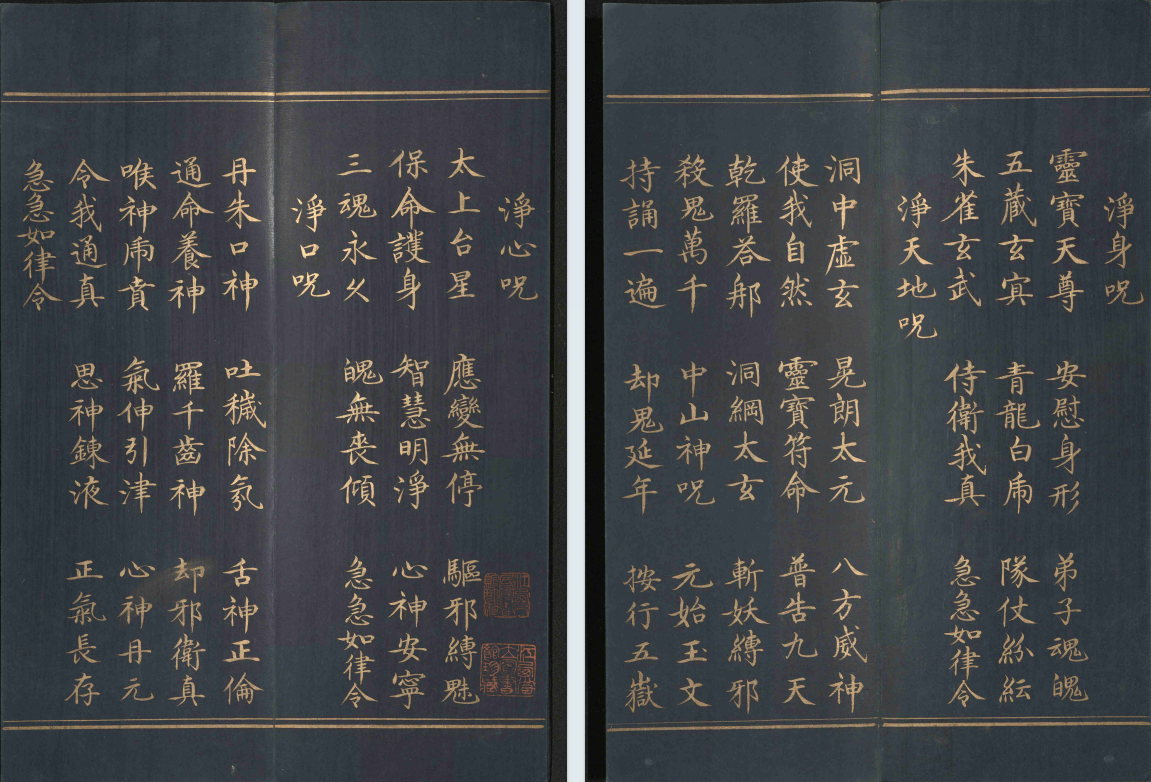 淨心呪
太上台星 應變無停 驅邪縛魅
保命護身 智慧明淨 心神安寧
三魂永乆 魄無喪傾 急急如律令
淨口呪
丹朱口神 吐穢除氛 舌神正倫
通命養神 羅千齒神 却邪衛真
喉神乕賁 氣伸引津 心神丹元
令我通真 思神鍊液 正氣長存
急急如律令
淨身呪
靈寶天尊 安慰身形 弟子魂魄
五藏玄㝠 青龍白乕 隊仗紛紜
朱雀玄武 侍衛我真 急急如律令
淨天地呪
洞中虛玄 晃朗太元 八方威神
使我自然 靈寶符命 普告九天
乾羅荅那 洞綱太玄 斬妖縛邪
殺鬼萬千 中山神呪 元始玉文
持誦一遍 却鬼延年 按行五嶽